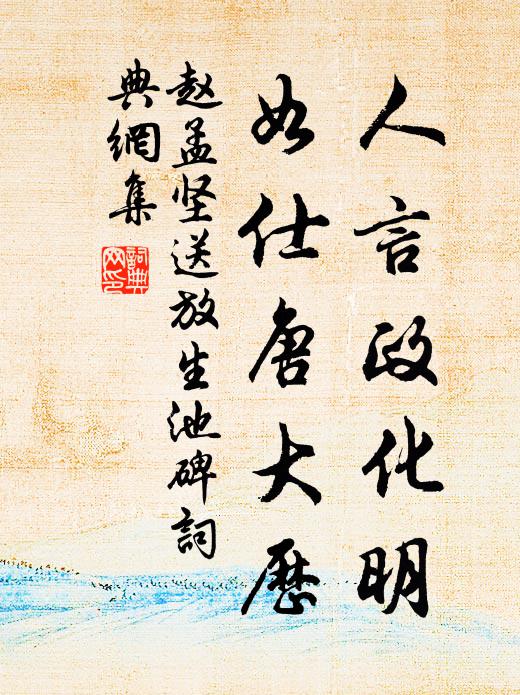 人言政化明
如仕唐大历
赵孟坚送放生池碑詞
典網集
詞典
网印